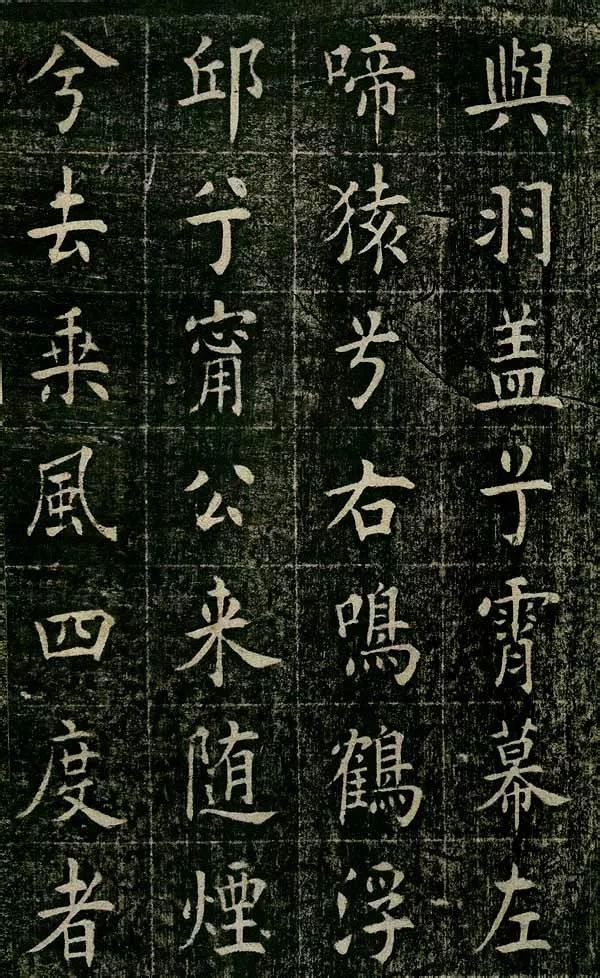 與羽盖兮霄幕左
啼猿兮右鳴鶴浮
邱兮甯公来随煙
兮去乗風四度者